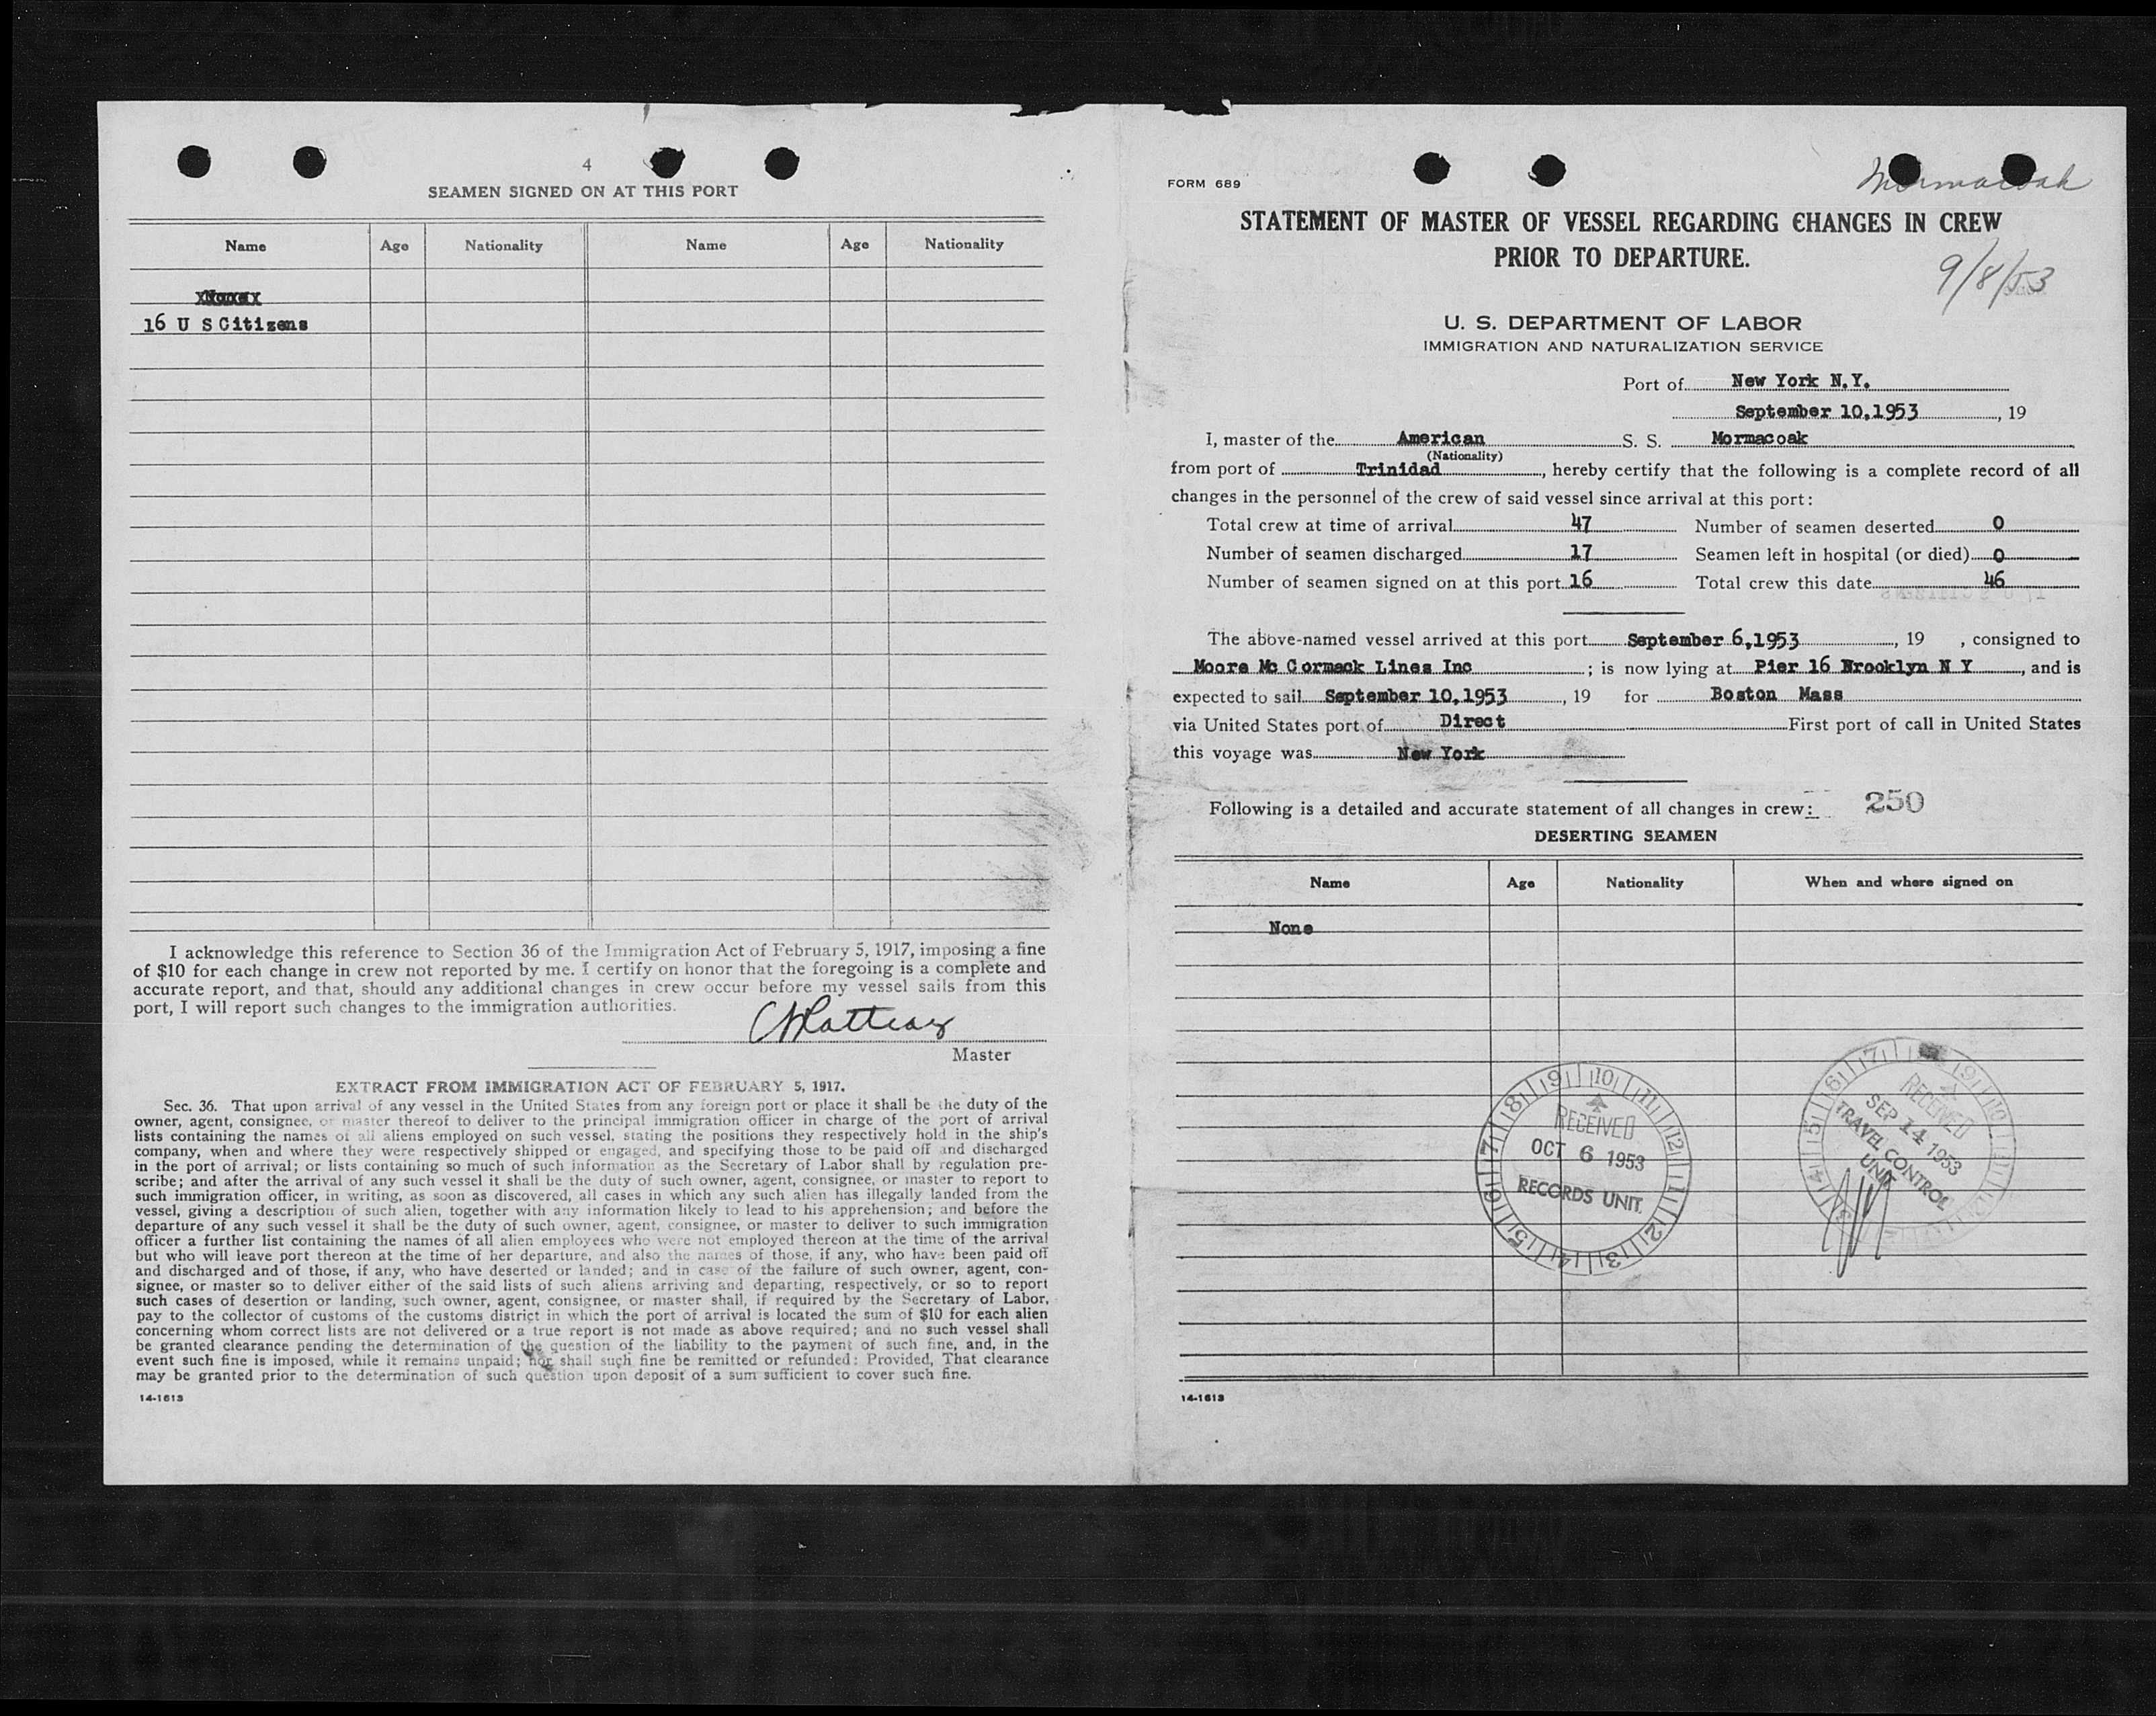 4
SEAMEN SIGNED ON AT THIS PORT
Name Age Nationality Name Age Nationality
16 U S Citizens
I acknowledge this reference to Section 36 of the Immigration Act of February 5, 1917, imposing a fine
of $10 for each change in crew not reported by me. I certify on honor that the foregoing is a complete and
accurate report, and that, should any additional changes in crew occur before my vessel sails from this
port, I will report such changes to the immigration authorities.
Master
EXTRACT FROM IMMIGRATION ACT OF FEBRUARY 5, 1917.
Sec. 36. That upon arrival of any vessel in the United States from any foreign port or place it shall be the duty of the
owner, agent, consignee, or master thereof to deliver to the principal immigration officer in charge of the port of arrival
lists containing the names of all aliens employed on such vessel, stating the positions they respectively hold in the ship's
company, when and where they were respectively shipped or engaged, and specifying those to be paid off and discharged
in the port of arrival; or lists containing so much of such information as the Secretary of Labor shall by regulation pre-
scribe; and after the arrival of any such vessel it shall be the duty of such owner, agent, consignee, or master to report to
such immigration officer, in writing, as soon as discovered, all cases in which any such alien has illegally landed from the
vessel, giving a description of such alien, together with any information likely to lead to his apprehension; and before the
departure of any such vessel it shall be the duty of such owner, agent, consignee, or master to deliver to such immigration
officer a further list containing the names of all alien employees who were not employed thereon at the time of the arrival
but who will leave port thereon at the time of her departure, and also the names of those, if any, who have been paid off
and discharged and of those, if any, who have deserted or landed; and in case of the failure of such owner, agent, con-
signee, or master so to deliver either of the said lists of such aliens arriving and departing, respectively, or so to report
such cases of desertion or landing, such owner, agent, consignee, or master shall, if required by the Secretary of Labor,
pay to the collector of customs of the customs district in which the port of arrival is located the sum of $10 for each alien
concerning whom correct lists are not delivered or a true report is not made as above required; and no such vessel shall
be granted clearance pending the determination of the question of the liability to the payment of such fine, and, in the
event such fine is imposed, while it remains unpaid; nor shall such fine be remitted or refunded: Provided, That clearance
may be granted prior to the determination of such question upon deposit of a sum sufficient to cover such fine.
14-1613
FORM 689
Mormacoak
STATEMENT OF MASTER OF VESSEL REGARDING CHANGES IN CREW
PRIOR TO DEPARTURE.
9/8/53
U. S. DEPARTMENT OF LABOR
IMMIGRATION AND NATURALIZATION SERVICE
Port of New York N.Y.
September 10,1953, 19
I, master of the American S. S. Mormacoak
(Nationality)
from port of Trinidad, hereby certify that the following is a complete record of all
changes in the personnel of the crew of said vessel since arrival at this port:
Total crew at time of arrival 47 Number of seamen deserted 0
Number of seamen discharged 17 Seamen left in hospital (or died) 0
Number of seamen signed on at this port 16 Total crew this date 46
The above-named vessel arrived at this port September 6,1953, 19 , consigned to
Moore Mc Cormack Lines Inc ; is now lying at Pier 16 Brooklyn N Y, and is
expected to sail September 10,1953, 19 for Boston Mass
via United States port of Direct First port of call in United States
this voyage was New York
Following is a detailed and accurate statement of all changes in crew:
250
DESERTING SEAMEN
Name Age Nationality When and where signed on
None
7 8 9 10 11 12 1 2 3 4 5 6
RECEIVED
OCT 6 1953
RECORDS UNIT.
RECEIVED
SEP 14 1953
TRAVEL CONTROL
UNIT
14-1613